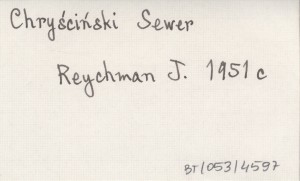 Chryściński Sewer
Reychman J. 1951 c
BT/053/4597